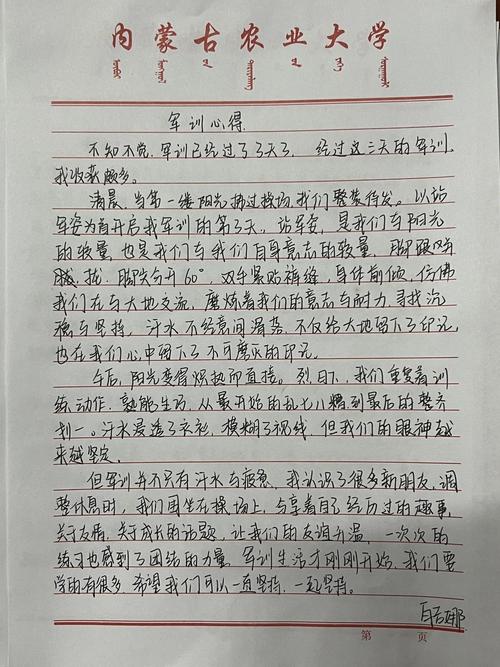 内蒙古农业大学
军训心得
不知不觉,军训已经过了3天了,经过这三天的军训,
我收获颇多。
清晨,当第一缕阳光拂过操场,我们整装待发。以站
军姿为首开启我军训的第3天。站军姿,是我们与阳光
的较量,也是我们与我们自身意志的较量,脚跟
脚尖分开60°,双手紧贴裤缝,身体前倾,仿佛
我们在与大地交流,磨炼着我们的意志与耐力,寻找沉
稳与坚持。汗水不经意间滑落,不仅给大地留下了印记,
也在我们心中留下了不可磨灭的印记。
午后,阳光变得炽热而直接。烈日下,我们重复着训
练动作,熟能生巧,从最开始的乱七八糟到最后的整齐
划一。汗水浸透了衣衫,模糊了视线,但我们的眼神越
来越坚定。
但军训并不只有汗水与疲惫,我认识了很多新朋友,调
整休息时,我们围坐在操场上,分享着自己经历过的趣事,
关于友情、关于成长的话题,让我们的友谊升温,一次次的
练习也感到了团结的力量,军训生活才刚刚开始,我们要
学的有很多,希望我们可以一直坚持,一起坚持。
第 页